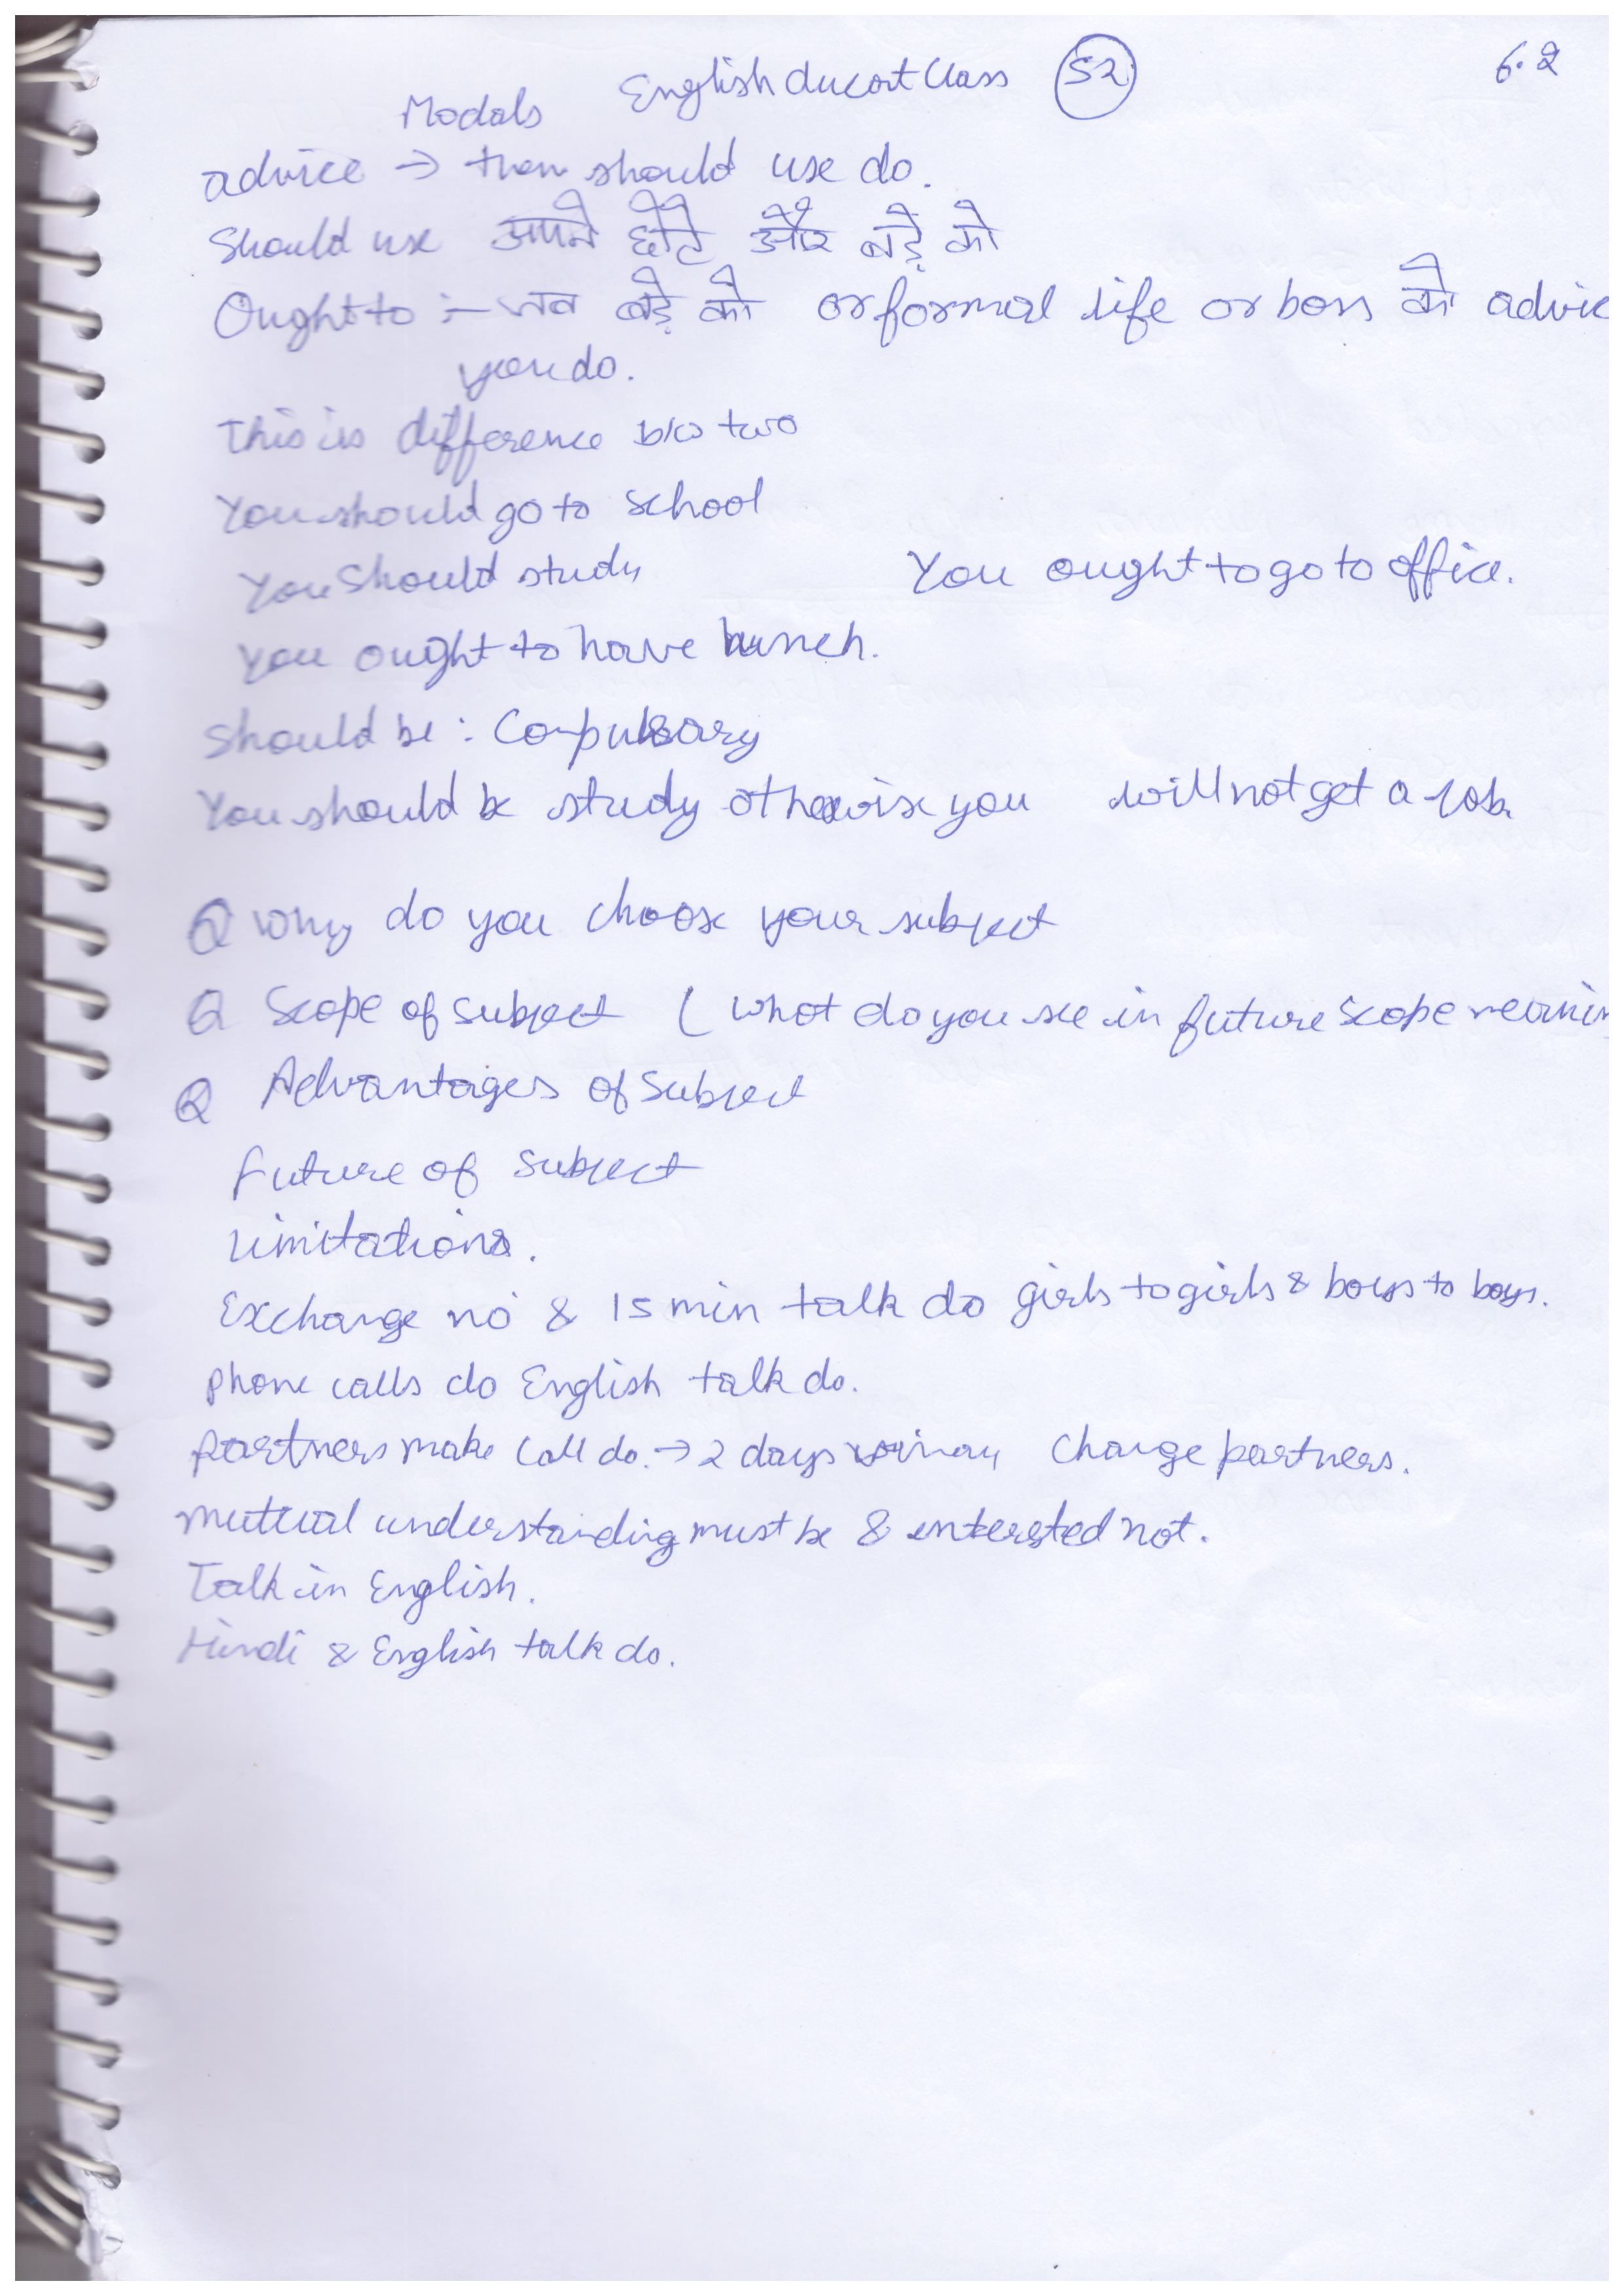 English ducat Class 52 6.2
Modals
advice → then should use do.
Should use अपने छोटे और बड़े को
Ought to :- जब बड़े को or formal life or boss को advic
you do.
This is difference b/w two
You should go to school
You Should study You ought to go to office.
You ought to have lunch.
should be : Compulsary
You should be study otherwise you will not get a job.
Q Why do you choose your subject
Q Scope of subject ( what do you see in future scope meanin
Q Advantages of Subject
future of subject
Limitations.
Exchange no & 15 min talk do girls to girls & boys to boys.
phone calls do English talk do.
partners make call do. → 2 days change partners.
mutual understanding must be & intersted not.
Talk in English.
Hindi & English talk do.